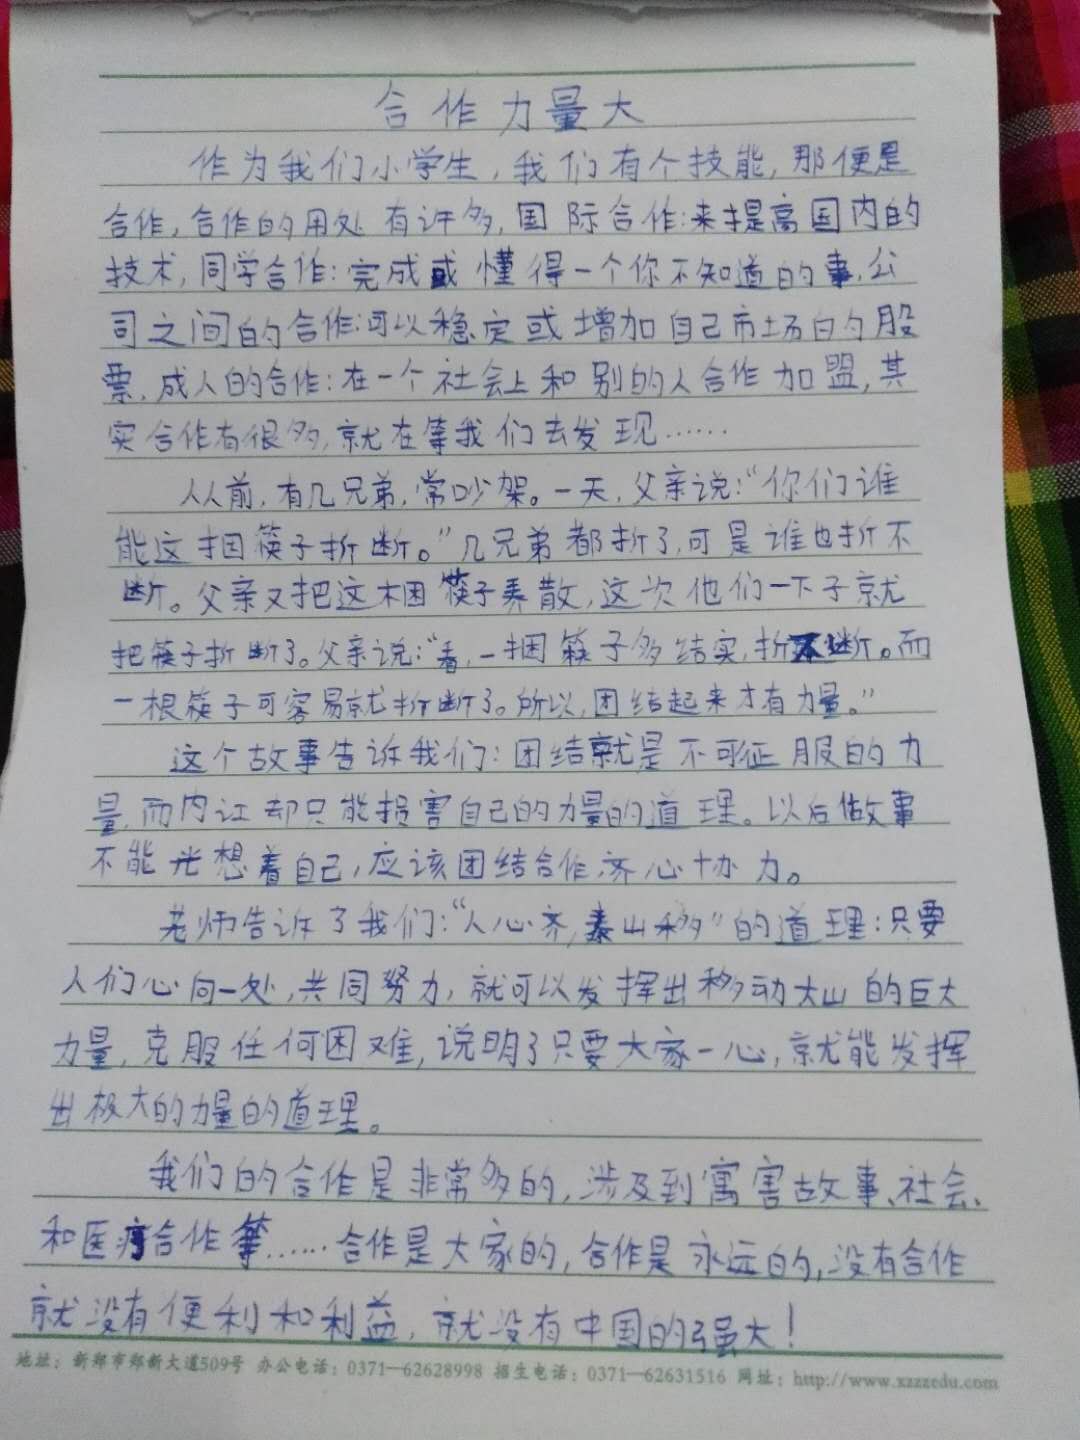 合作力量大
作为我们小学生，我们有个技能，那便是
合作，合作的用处有许多，国际合作：来提高国内的
技术，同学合作：完成或懂得一个你不知道的事，公
司之间的合作：可以稳定或增加自己市场的股
票，成人的合作：在一个社会上和别的人合作加盟，其
实合作有很多，就在等我们去发现……
从前，有几兄弟，常吵架。一天，父亲说：“你们谁
能这捆筷子折断。”几兄弟都折了，可是谁也折不
断。父亲又把这捆筷子弄散，这次他们一下子就
把筷子折断了。父亲说：“看，一捆筷子多结实，折不断。而
一根筷子可容易就折断了。所以，团结起来才有力量。”
这个故事告诉我们：团结就是不可征服的力
量，而内讧却只能损害自己的力量的道理。以后做事
不能光想着自己，应该团结合作，齐心协力。
老师告诉了我们：“人心齐，泰山移”的道理：只要
人们心向一处，共同努力，就可以发挥出移动大山的巨大
力量，克服任何困难，说明了只要大家一心，就能发挥
出极大的力量的道理。
我们的合作是非常多的，涉及到寓害故事、社会、
和医疗合作等……合作是大家的，合作是永远的，没有合作
就没有便利和利益，就没有中国的强大！
地址：新郑市郑新大道509号 办公电话：0371—62628998 招生电话：0371—62631516 网址：http://www.xzzzedu.com